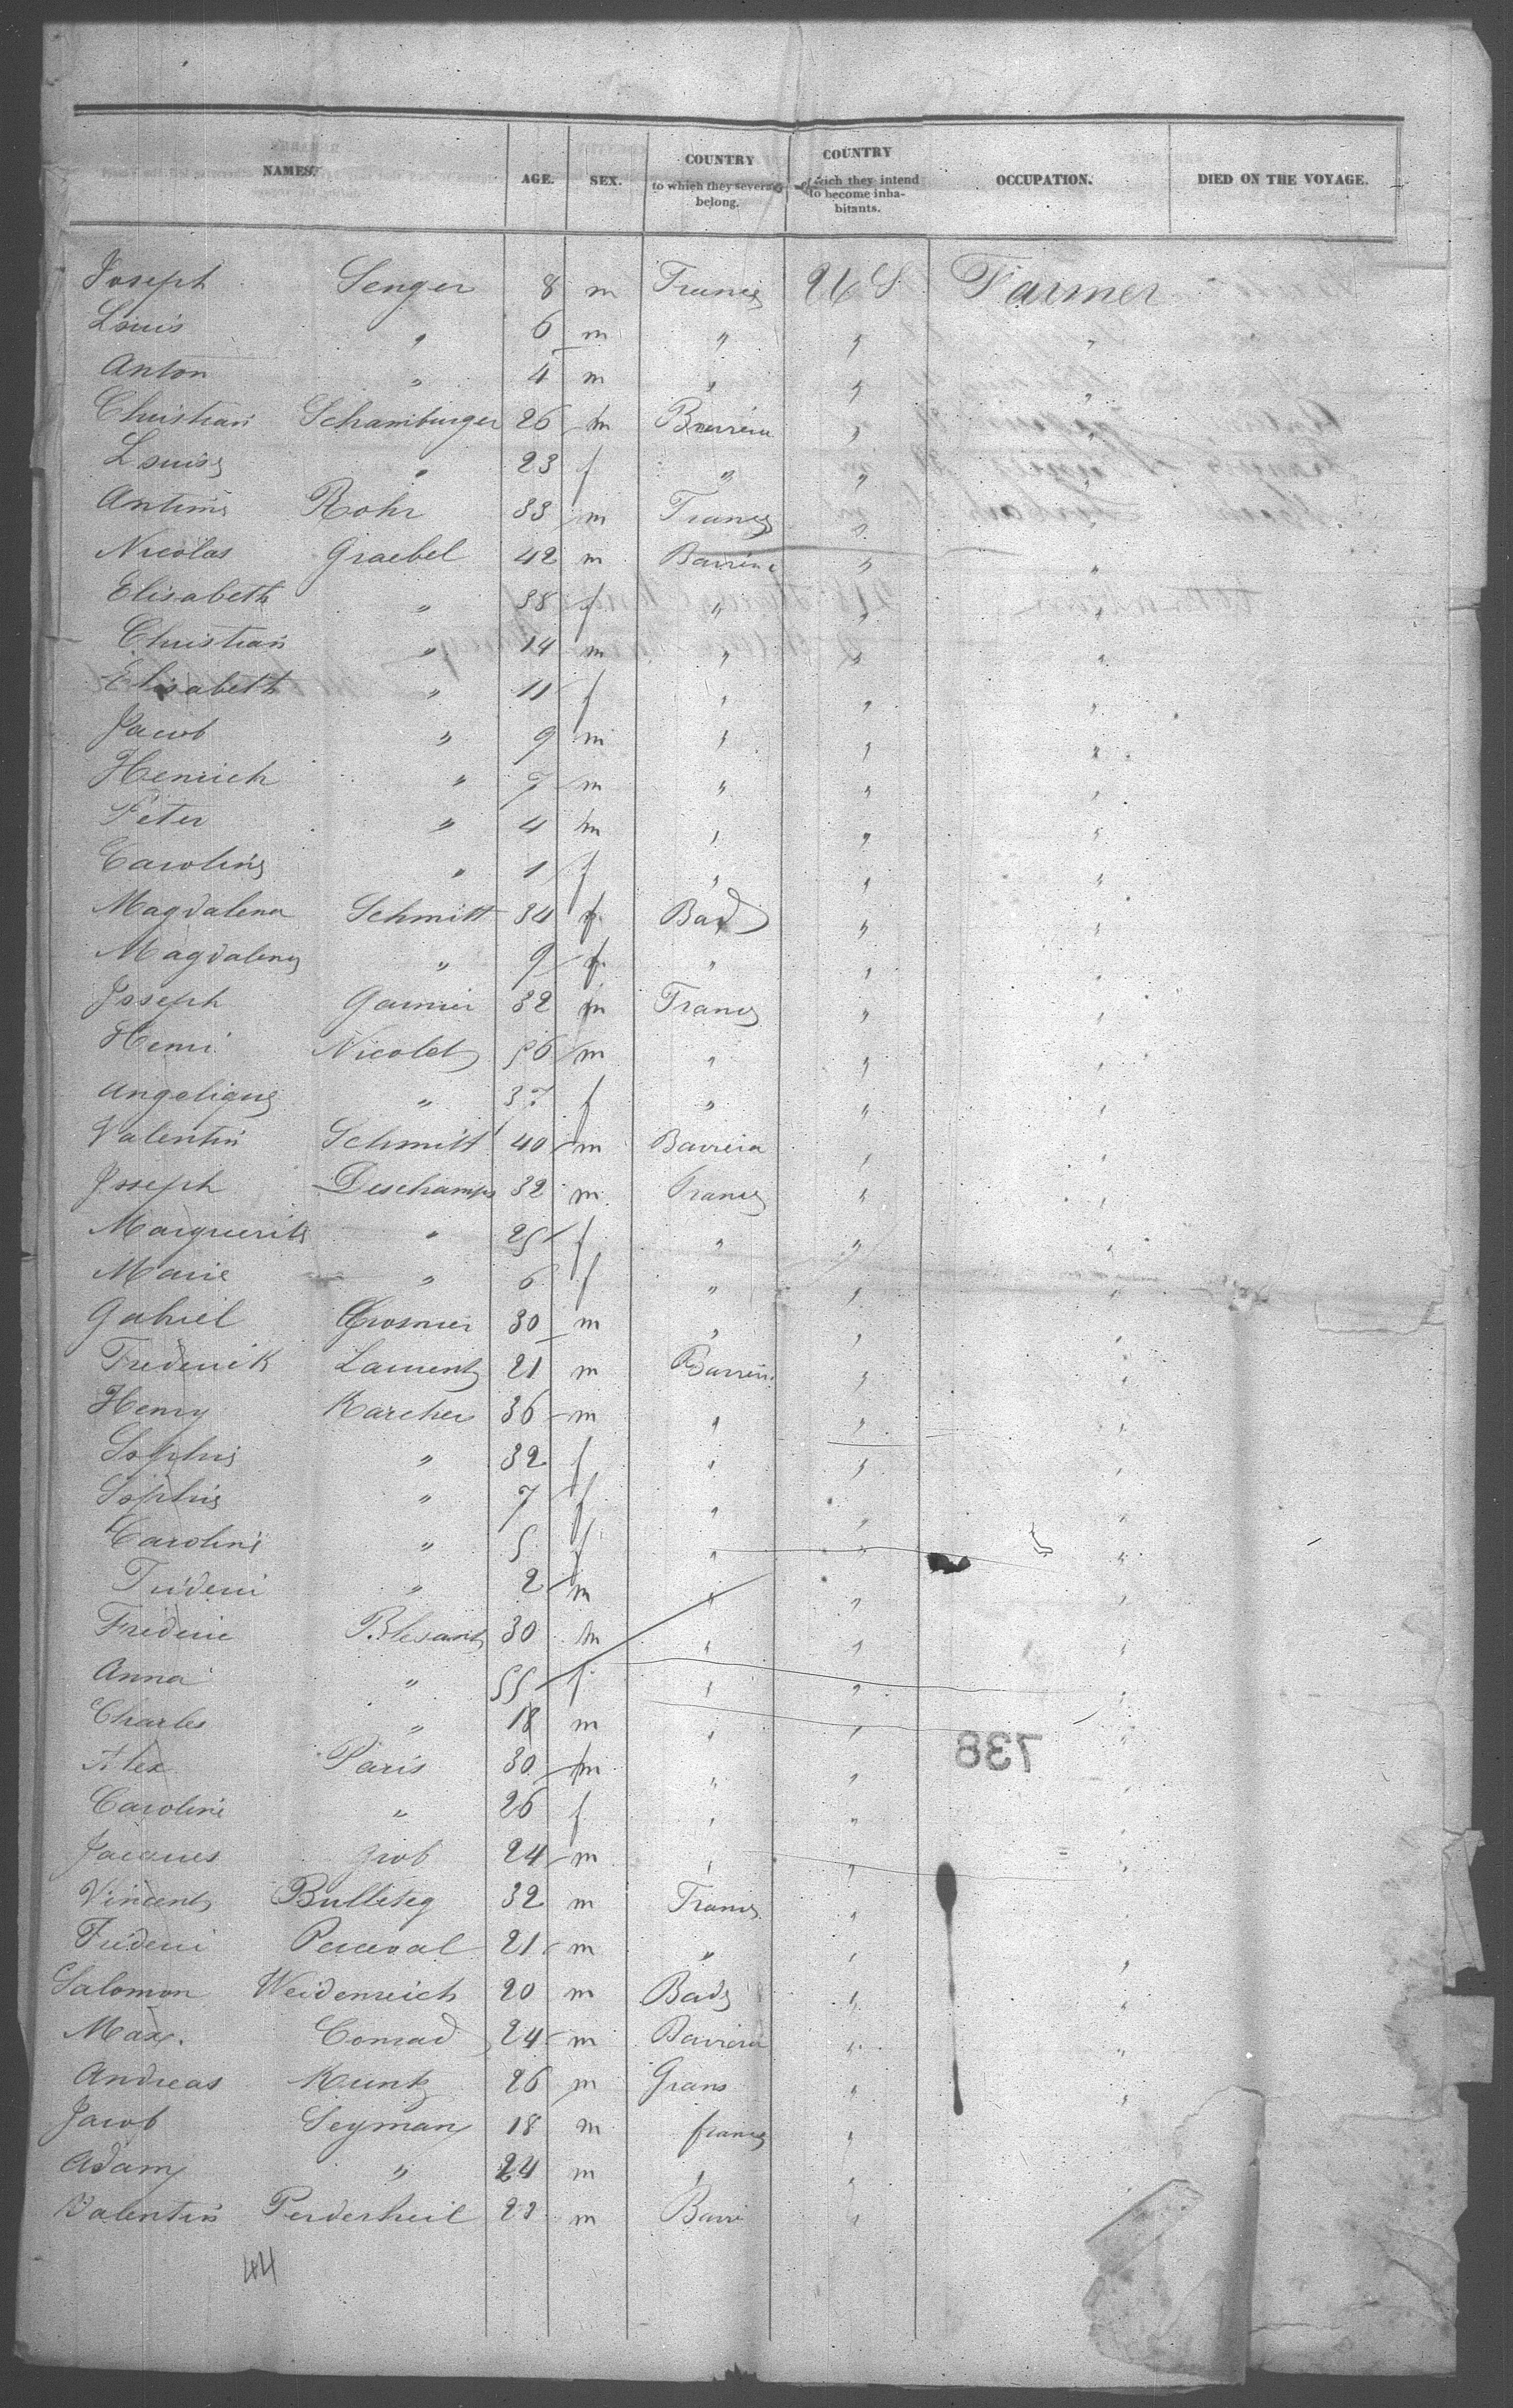 NAMES. AGE. SEX. COUNTRY to which they severally belong. COUNTRY of which they intend to become inhabitants. OCCUPATION. DIED ON THE VOYAGE.
Joseph Senger 8 m France U S Farmer
Louis " 6 m " " "
Anton " 4 m " " "
Christian Schamburger 26 m Bavaria " "
Louise " 23 f " " "
Antoine Rohr 33 m France " "
Nicolas Graebel 42 m Bavaria " "
Elisabeth " 38 f " " "
Christian " 14 m " " "
Elisabeth " 11 f " " "
Jacob " 9 m " " "
Henrich " 7 m " " "
Peter " 4 m " " "
Caroline " 1 f " " "
Magdalena Schmitt 34 f Bad " "
Magdalena " 9 f " " "
Joseph Garnier 32 m France " "
Henri Nicolet 56 m " " "
Angelique " 37 f " " "
Valentin Schmitt 40 m Bavaria " "
Joseph Deschamps 32 m France " "
Marguerite " 25 f " " "
Marie " 6 f " " "
Gabriel Grosnier 30 m " " "
Frederik Laurent 21 m Bavaria " "
Henry Karcher 36 m " " "
Sophie " 32 f " " "
Sophie " 7 f " " "
Caroline " 5 f " " "
Frideric " 2 m " " "
Frideric Blesant 30 m " " "
Anna " 55 f " " "
Charles " 18 m " " "
738
Alex Paris 30 m " " "
Caroline " 26 f " " "
Jacques Grob 24 m " " "
Vincent 32 m France " "
Frideric Perceval 21 m " " "
Salomon Weidenreich 20 m Bade " "
Max. Conrad 24 m Bavaria " "
Andreas Kuntz 26 m " "
Jacob Seyman 18 m france "
Adam " 24 m " "
Valentin Perderheil 22 m Bavri "
44